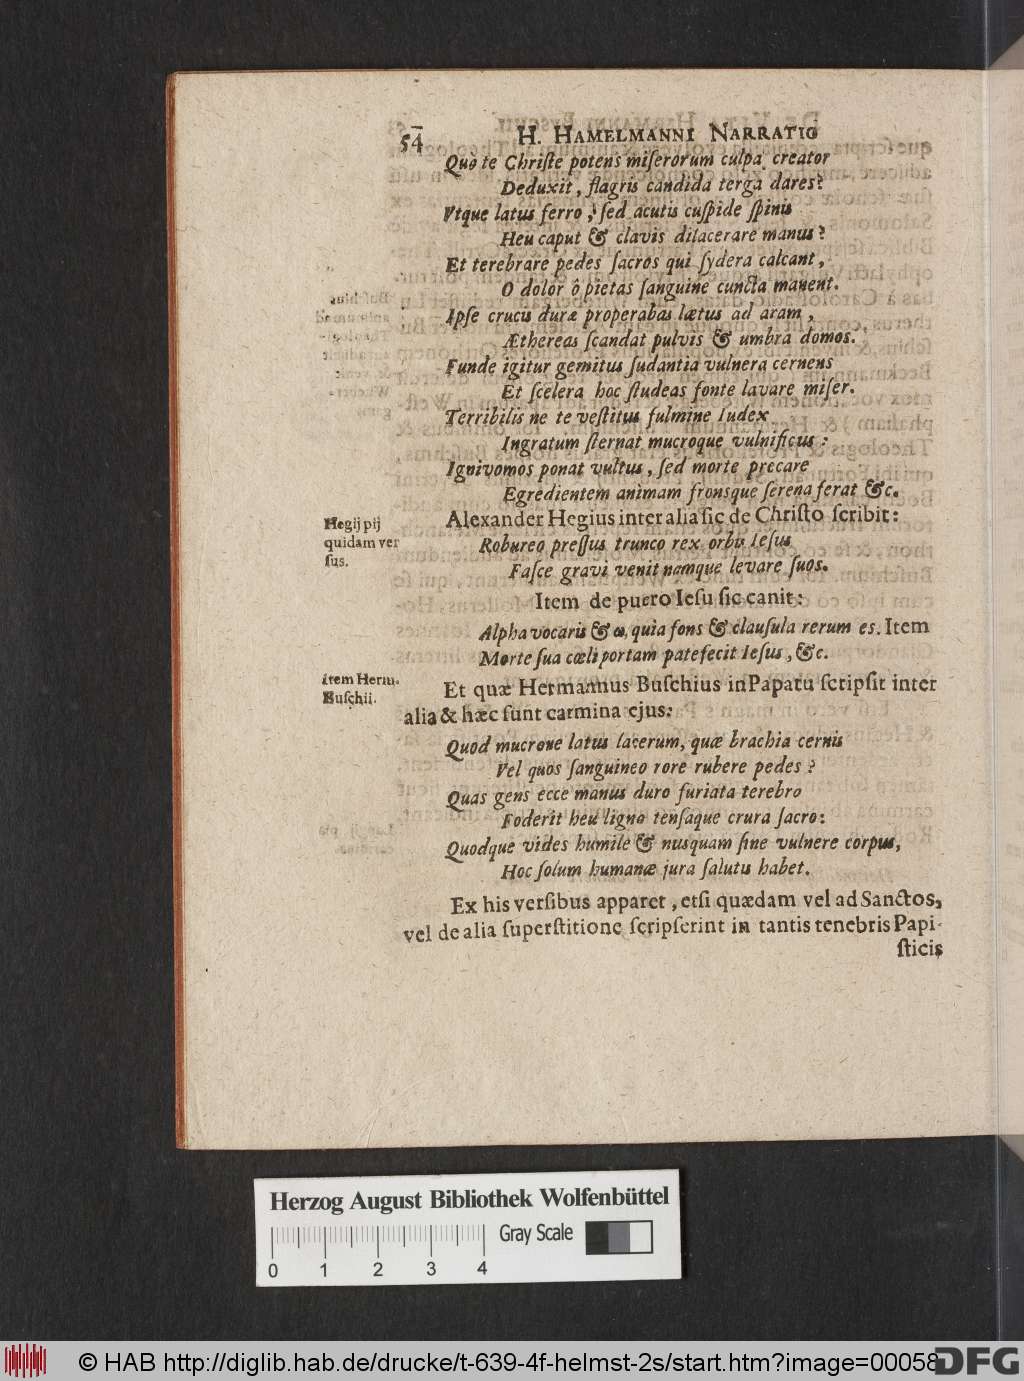 54
H. HAMELMANNI NARRATIO
Quo te Chriſte potens miſerorum culpa creator
Deduxit, flagris candida terga dares?
Vtque latus ferro, ſed acutis cuſpide ſpinis
Heu caput & clavis dilacerare manus?
Et terebrare pedes ſacros qui ſydera calcant,
O dolor ô pietas ſanguine cuncta manent.
Ipſe crucis duræ properabas lætus ad aram,
Æthereas ſcandat pulvis & umbra domos.
Funde igitur gemitus ſudantia vulnera cernens
Et ſcelera hoc ſtudeas fonte lavare miſer.
Terribilis ne te veſtitus fulmine Iudex
Ingratum ſternat mucroque vulnificus:
Ignivomos ponat vultus, ſed morte precare
Egredientem animam fronsque ſerena ferat &c.
Alexander Hegius inter alia ſic de Chriſto ſcribit:
Hegij pij
quidam ver
ſus.
Robureo preſſus trunco rex orbis Ieſus
Faſce gravi venit namque levare ſuos.
Item de puero Ieſu ſic canit:
Alpha vocaris & ω, quia fons & clauſula rerum es. Item
Morte ſua cœli portam patefecit Ieſus, &c.
item Herm.
Buſchii.
Et quæ Hermannus Buſchius in Papatu ſcripſit inter
alia & hæc ſunt carmina ejus:
Quod mucrone latus lacerum, quæ brachia cernis
Vel quos ſanguineo rore rubere pedes?
Quas gens ecce manus duro furiata terebro
Foderit heu ligno tenſaque crura ſacro:
Quodque vides humile & nusquam ſine vulnere corpus,
Hoc ſolum humanæ jura ſalutis habet.
Ex his verſibus apparet, etſi quædam vel ad Sanctos,
vel de alia ſuperſtitione ſcripſerint in tantis tenebris Papi-
ſticis
Herzog August Bibliothek Wolfenbüttel
Gray Scale
0 1 2 3 4
© HAB http://diglib.hab.de/drucke/t-639-4f-helmst-2s/start.htm?image=00058
DFG